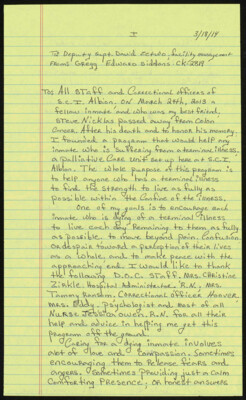 I
3/18/14
To Deputy Supt. David
From: Gregg Edward Siddons CK-2819
To: All Staff and Correctional officers of
S.C.I. Albion. On March 29th, 2013 a
fellow inmate and who was my best friend,
Steve Nickles passed away from Colon
Cancer. After his death and to honor his memory
I founded a program that would help any
inmate who is suffering from a terminal illness.
a palliative Care Unit set up here at S.C.I.
Albion. The whole purpose of this program is
to help anyone who has a terminal illness
to find the strength to live as fully as
possible within the Confine of the illness.
One of my goals is to encourage each
inmate who is dying of a terminal illness
to live each day Remaining to them as fully
as possible. to move beyond pain, Confusion
or despair toward a perception of their lives
as a whole, and to make peace with the
approaching end. I would like to thank
the following D.O.C. Staff. Mrs. Christine
Zirkle. Hospital Administrator. R.N., Mrs.
Tammy Ransom. Correctional officer
Mrs. psychologist and most of all
Nurse Jessica Owen. R.N. for all their
help and advice in helping me get this
program off the ground.
Caring for a dying inmate involves
Acts of love and Compassion. Sometimes
encouraging them to Release fears and
angers. Sometimes providing just a Calm
Comforting PRESENCE, or honest answers